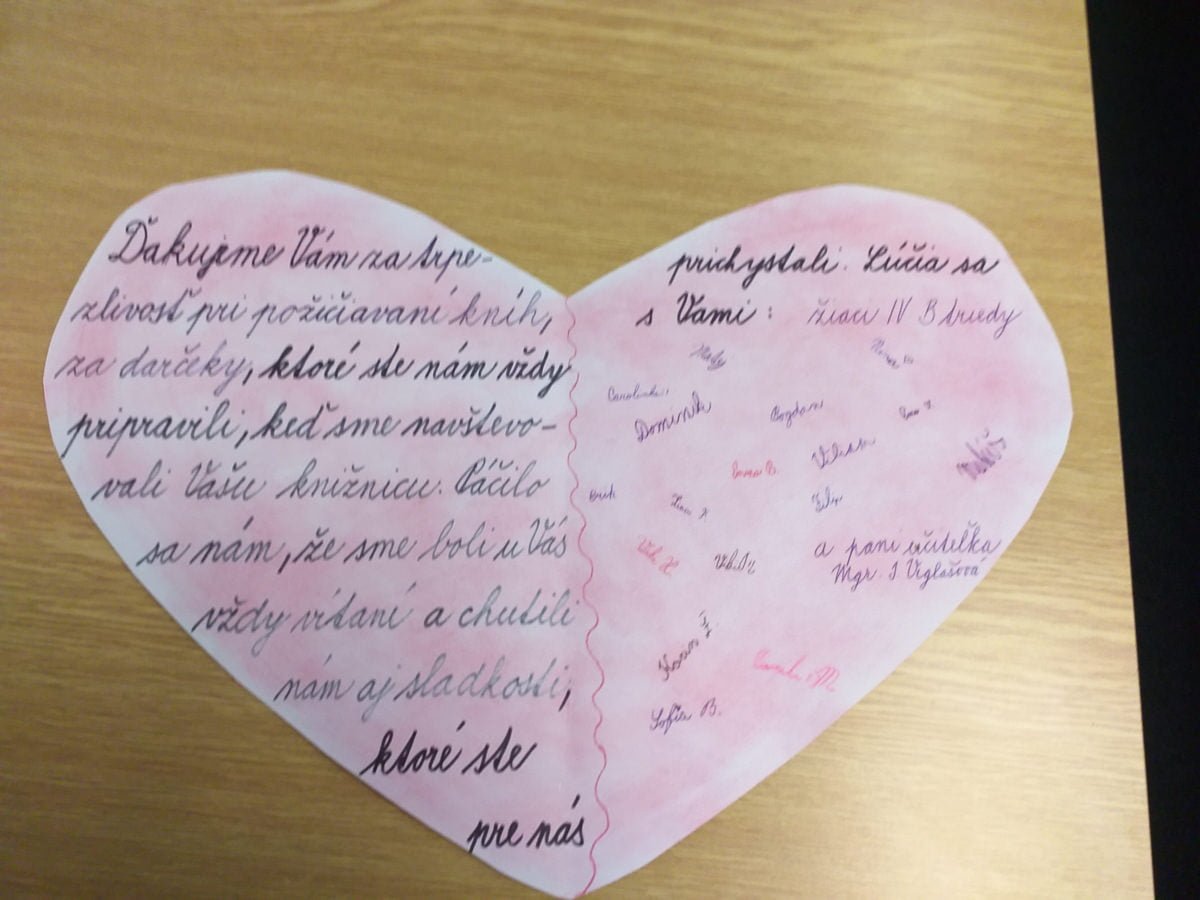 Ďakujeme Vám za trpe-
zlivosť pri požičiavaní kníh,
za darčeky, ktoré ste nám vždy
pripravili, keď sme navštevo-
vali Vašu knižnicu. Páčilo
sa nám, že sme boli u Vás
vždy vítaní a chutili
nám aj sladkosti,
ktoré ste
pre nás
prichystali. Lúčia sa
s Vami : žiaci IV B triedy
Dominik
Bogdan
Erik
Filip
a pani učiteľka
Mgr. I. Viglašová
Sofia B.